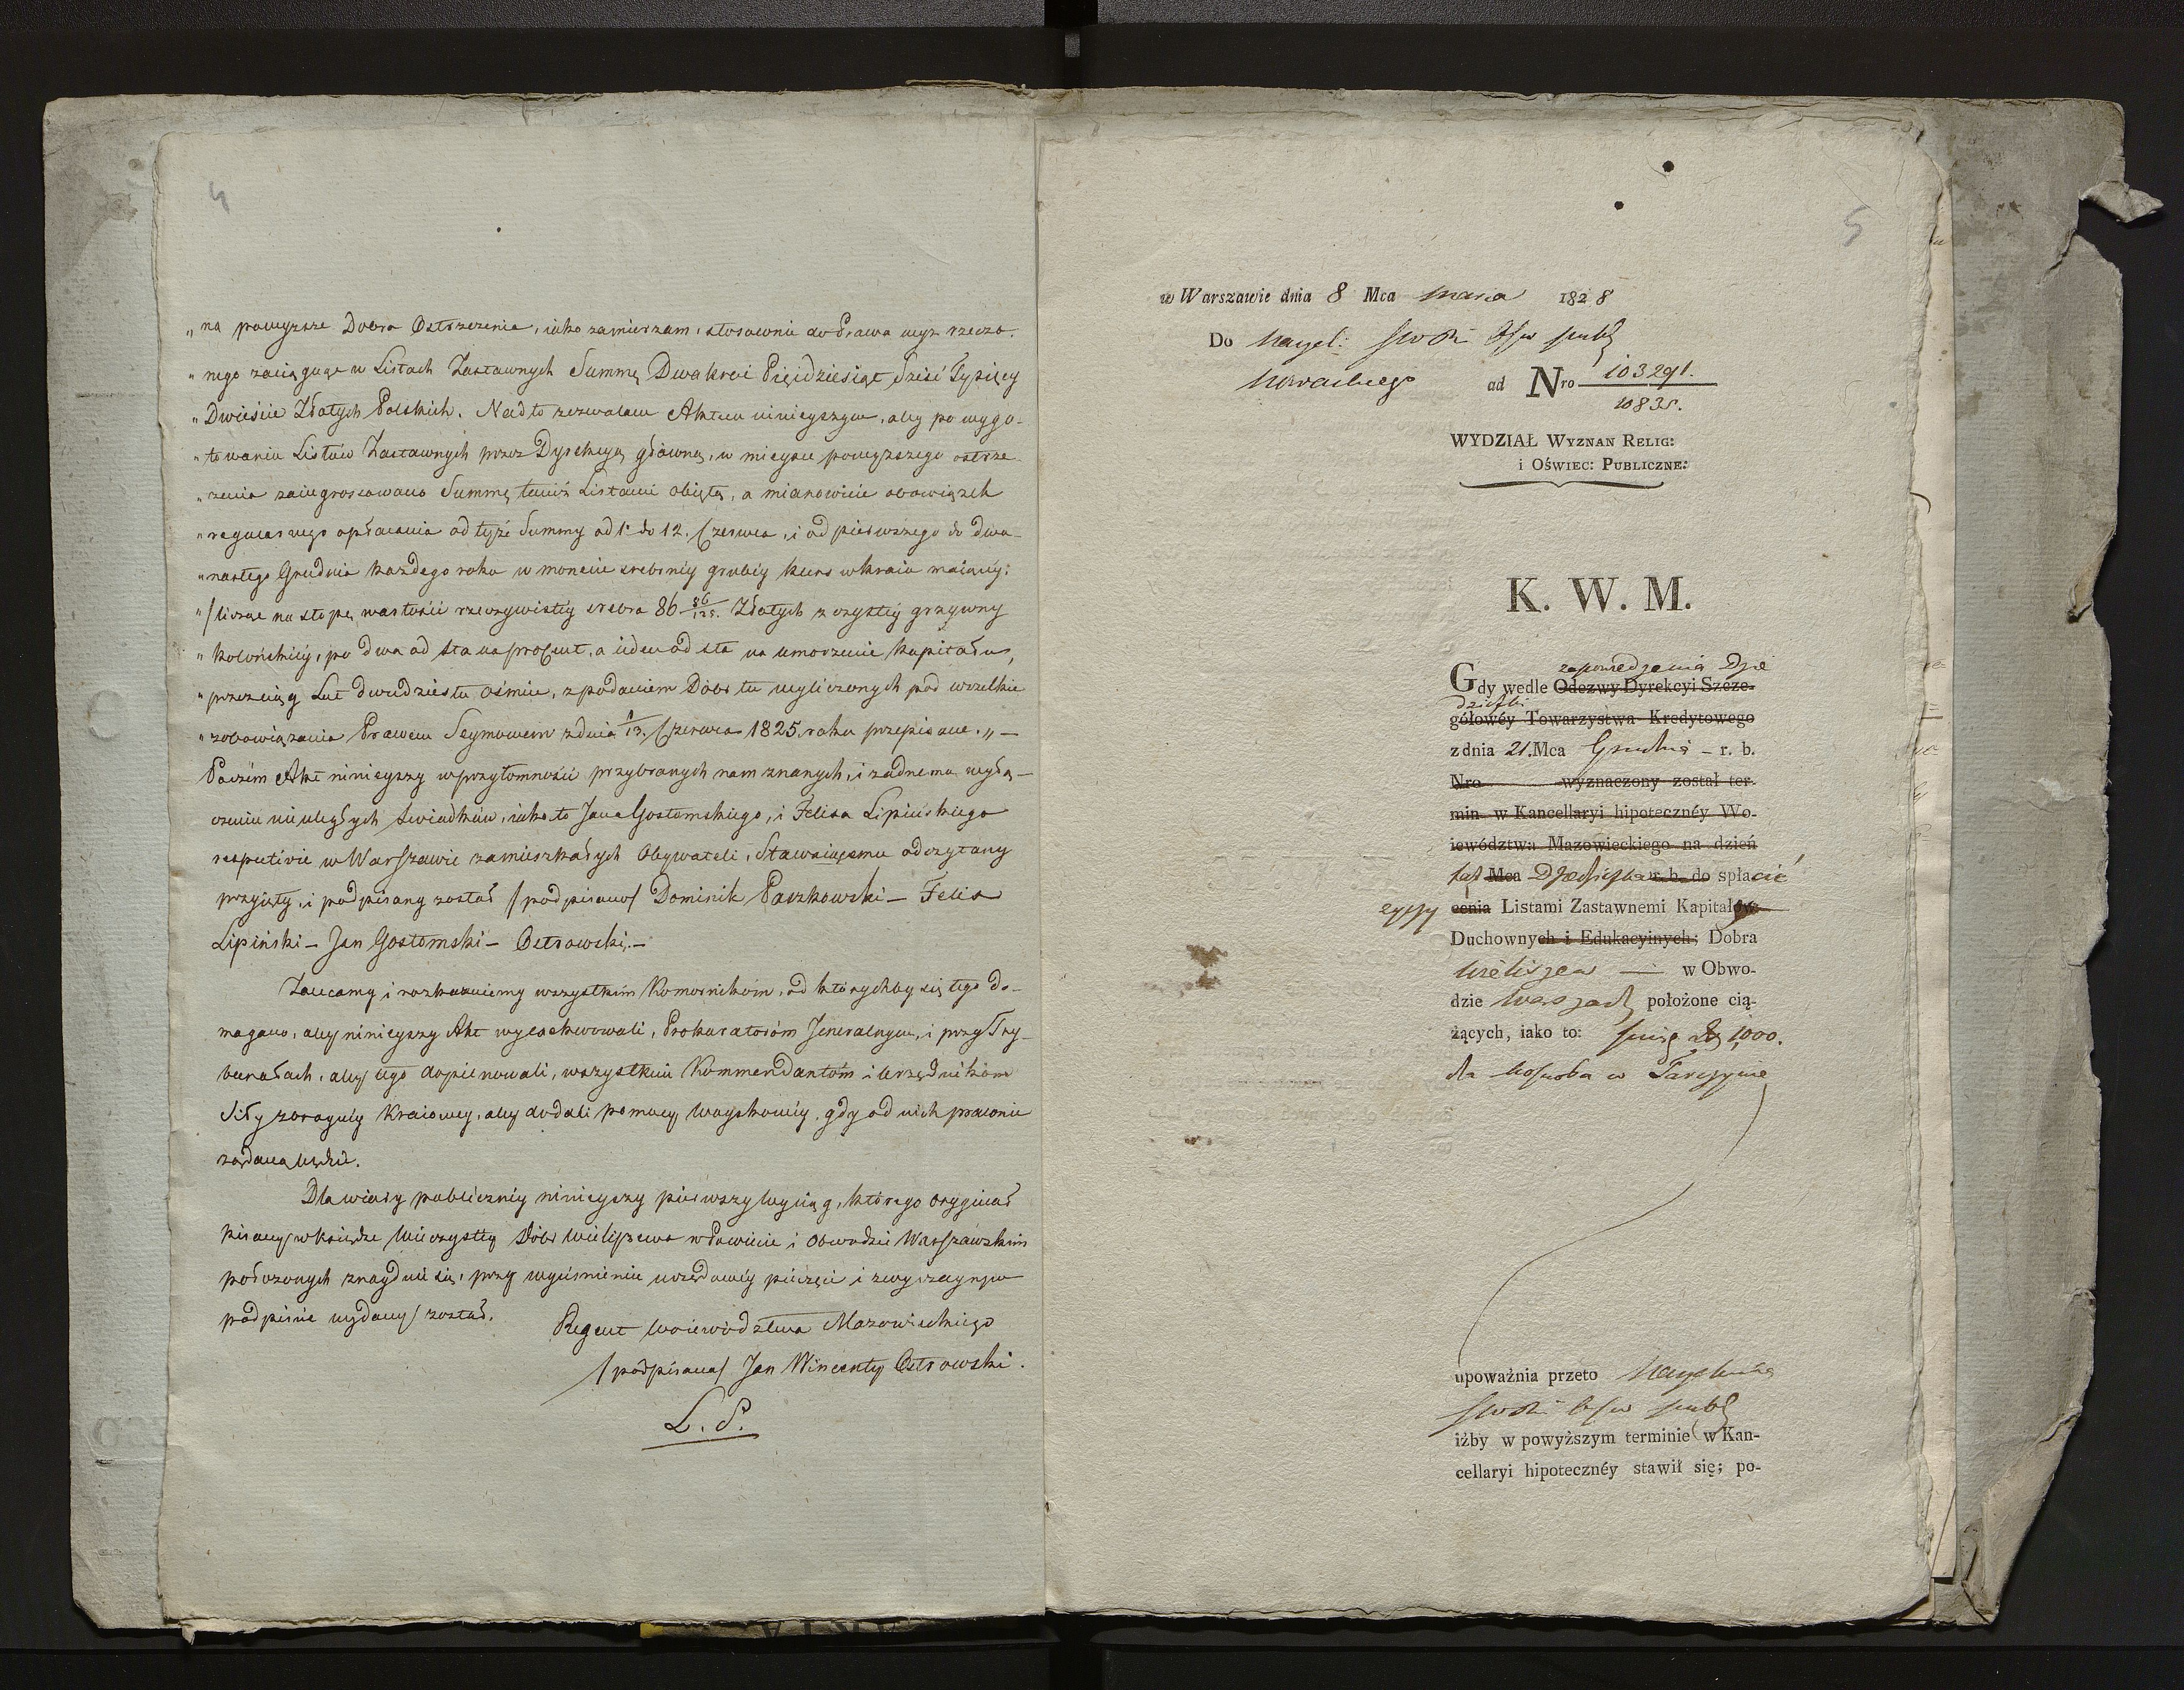 4
„ na powyższe Dobra Ostrzeżenie, iako zamierzam, stosownie do Prawa wyż rzeczo-
„ nego zaciągnąć w Listach Zastawnych Summę Dwakroć Pięćdziesiąt Sześć Tysięcy
„ Dwieście Złotych Polskich. Nadto zezwalam Aktem ninieyszym, aby po wygo-
„ towaniu Listów Zastawnych przez Dyrekcyą główną, w mieysce powyższego ostrze-
„ żenia zaingrossowano Summę temiż Listami obiętą, a mianowicie obowiązek
„ regularnego opłacania od tyże Summy od 1o do 12. Czerwca, i od pierwszego do dwu-
„ nastego Grudnia każdego roku w monecie srebrnéy grubéy kurs w kraiu maiącéy:
„ /licząc na stopę wartości rzeczywistéy srebra 86 86/125. Złotych z czystéy grzywny
„ kolońskiéy, po dwa od sta na procent, a ieden od sta na umorzenie kapitału,
„ przeciąg Lat dwudziestu ośmiu, z poddaniem Dóbr tu wyliczonych pod wszelkie
„ zobowiązania Prawem Seymowem z dnia 1/13. Czerwca 1825. roku przepisane. „ —
Poczém Akt ninieyszy w przytomności przybranych nam znanych, i żadnemu wyłą-
czeniu nieuległych świadków, iako to Jana Gostomskiego, i Felixa Lipińskiego
respective w Warszawie zamieszkałych Obywateli, Stawaiącemu odczytany
przyięty, i podpisany został /podpisano/ Dominik Paczkowski — Felix
Lipiński — Jan Gostomski — Ostrowski. —
Zalecamy i rozkazuiemy wszystkim Komornikom, od którychby się tego do-
magano, aby ninieyszy Akt wyexekwowali, Prokuratoróm Jeneralnym, i przy Try-
bunałach, aby tego dopilnowali, wszystkim Kommendantóm i Urzędnikóm
Siły zbroynéy Kraiowey, aby dodali pomocy woyskowéy, gdy od nich prawnie
żądana będzie.
Dla wiary publicznéy ninieyszy pierwszy wyciąg, którego oryginał
pisany w księdze wieczystéy Dóbr Wieliszewa w Powiecie i Obwodzie Warszawskim
położonych znayduie się, przy wyciśnieniu urzędowéy pieczęci i zwyczaynym
podpisie wydany został.
Regent Woiewództwa Mazowieckiego
/podpisano/ Jan Wincenty Ostrowski.
L. S.
5
w Warszawie dnia 8 Mca Marca 1828
Do
ad Nro 103291.
10835.
WYDZIAŁ WYZNAN RELIG:
i OŚWIEC: PUBLICZNE:
K. W. M.
zapowiedzenia Dzie
Gdy wedle Odezwy Dyrekcyi Szcze-
gółowéy Towarzystwa Kredytowego
z dnia 21. Mca Grudnia – r. b.
Nro wyznaczony został ter-
min w Kancellaryi hipotecznéy Wo-
iewództwa Mazowieckiego na dzień
Mca r. b. do spłacić
cenia Listami Zastawnemi Kapitałów
Duchownych i Edukacyinych; Dobra
Wieliszew — w Obwo-
dzie Warszaw położone cią-
żących, iako to: 1,000.
dla w Tarczynie
upoważnia przeto
iżby w powyższym terminie w Kan-
cellaryi hipotecznéy stawił się; po-